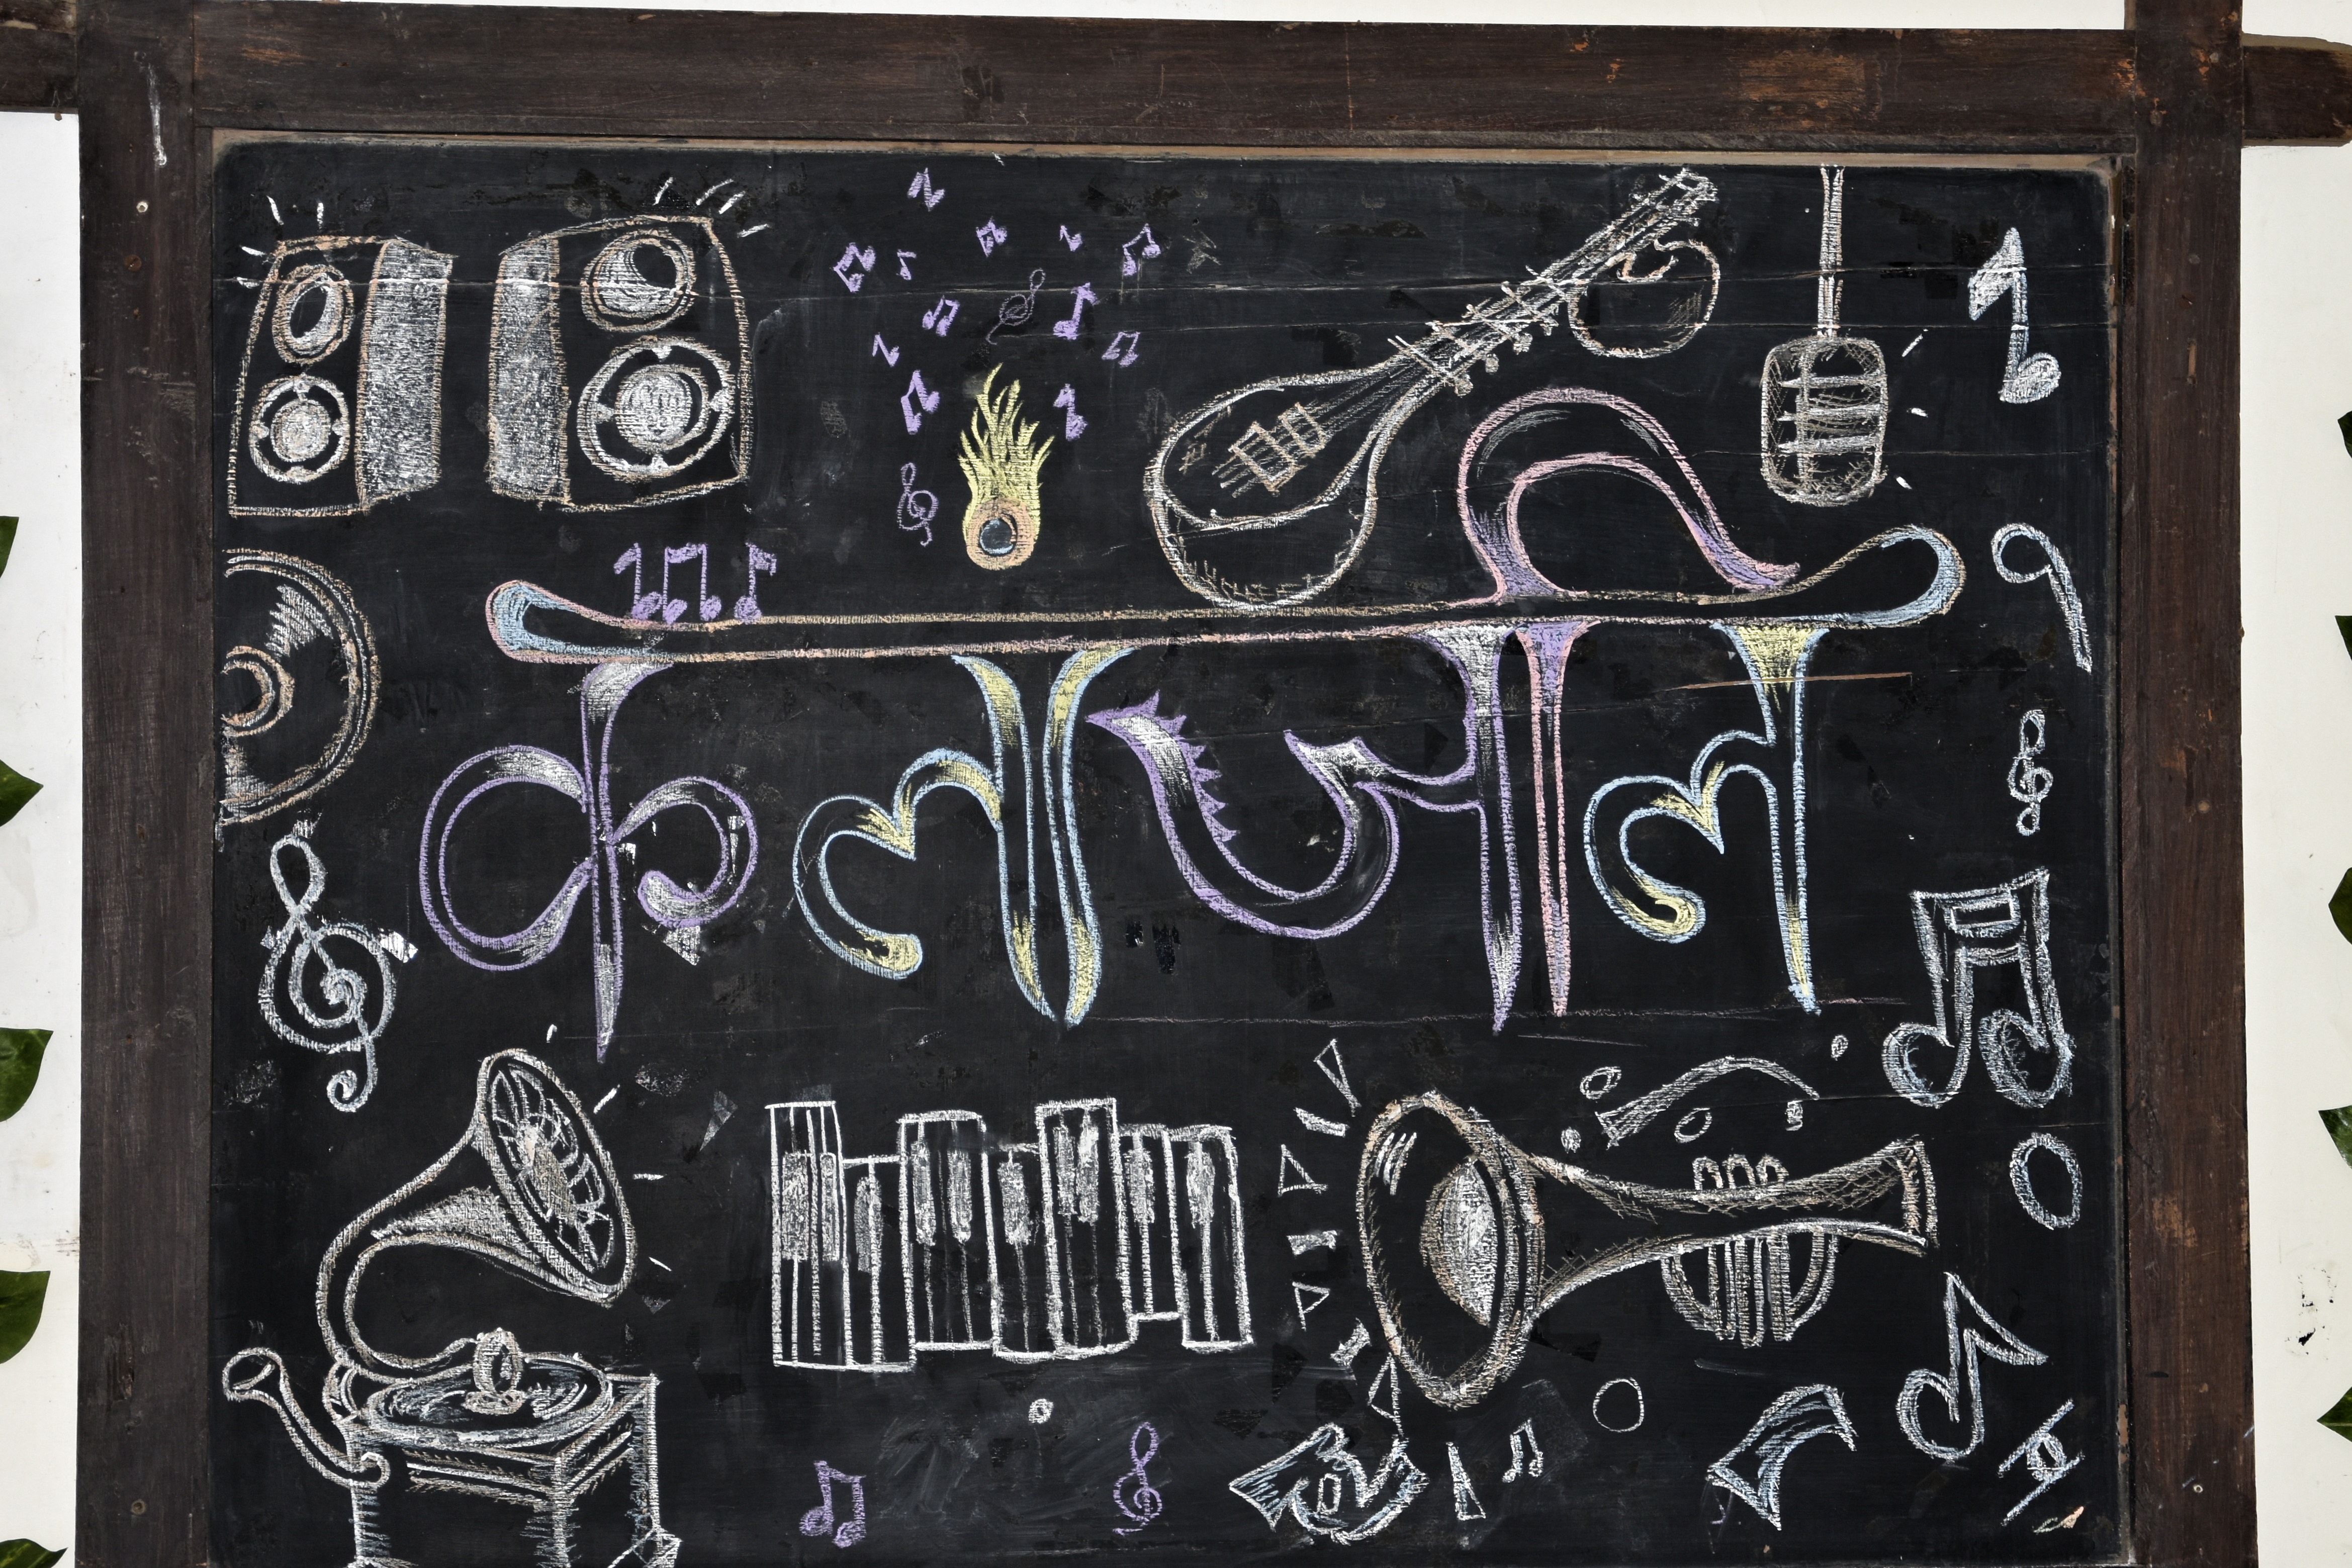 कलांजलि